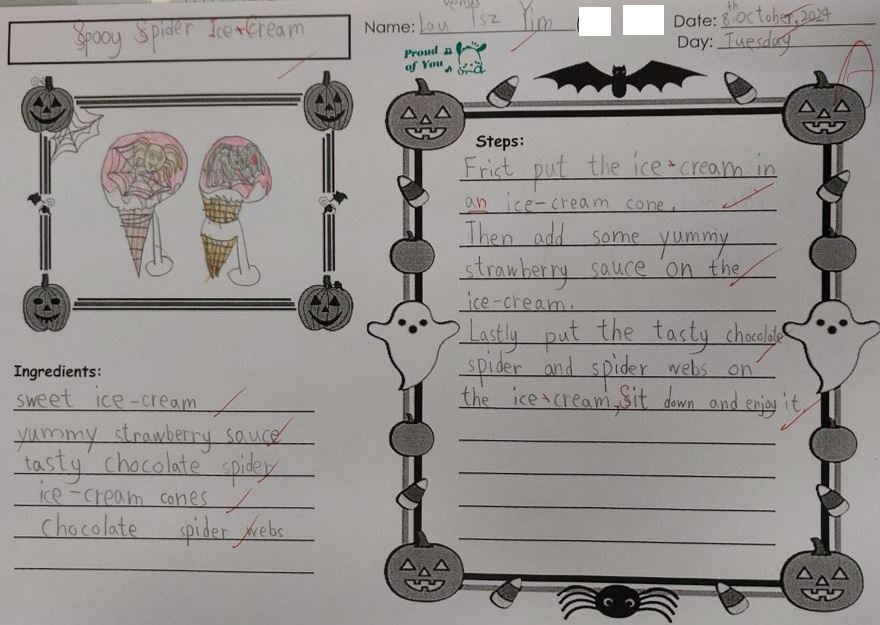 Spooy Spider Ice-Cream
Name: Lau Tsz Yim
Venus
Date: 8th October, 2024
Day: Tuesday
Proud of You
A
Ingredients:
sweet ice-cream
yummy strawberry sauce
tasty chocolate spider
ice-cream cones
chocolate spider webs
Steps:
Frist put the ice-cream in
an ice-cream cone.
Then add some yummy
strawberry sauce on the
ice-cream.
Lastly put the tasty chocolate
spider and spider webs on
the ice-cream, Sit down and enjoy it.